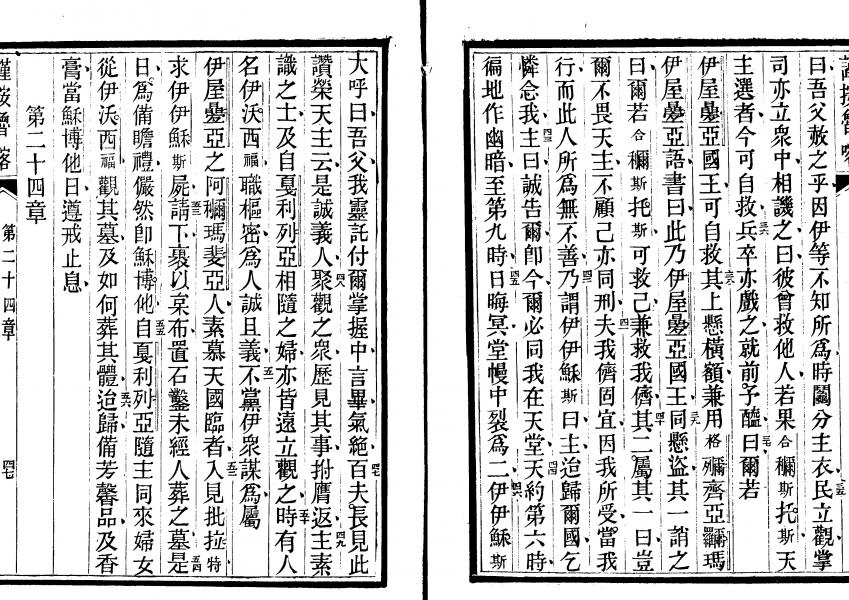 曰吾父赦之乎因伊等不知所爲時鬮分主衣民立觀掌
司亦立衆中相譏之曰彼曾救他人若果合穪斯托斯天
主選者今可自救兵卒亦戲之就前予醯曰爾若
伊屋疉亞國王可自救其上懸橫額兼用格穪齊亞羅穪瑪
伊屋疉亞語書曰此乃伊屋疉亞國王同懸盜其一誚之
曰爾若合穪斯托斯可救己兼救我儕其二屬其一曰豈
爾不畏天主不顧己亦同刑夫我儕固宜因我所受當我
行而此人所爲無不善乃謂伊伊穌斯曰主迨歸爾國乞
憐念我主曰誠告爾卽今爾必同我在天堂天約第六時
徧地作幽暗至第九時日晦冥堂幔中裂爲二伊伊穌斯
大呼曰吾父我靈託付爾掌握中言畢氣絶百夫長見此
讚榮天主云是誠義人聚觀之衆歷見其事拊膺返主素
識之士及自戛利列亞相隨之婦亦皆遠立觀之時有人
名伊沃西福職樞密爲人誠且義不黨伊衆謀爲屬
伊屋疉亞之阿穪瑪斐亞人素慕天國臨者入見批拉特
求伊伊穌斯屍請下裹以枲布置石鑿未經人葬之墓是
日爲備瞻禮儼然卽穌博他自戛利列亞隨主同來婦女
從伊沃西福觀其墓及如何葬其體迨歸備芳馨品及香
膏當穌博他日遵戒止息
第二十四章
第二十四章